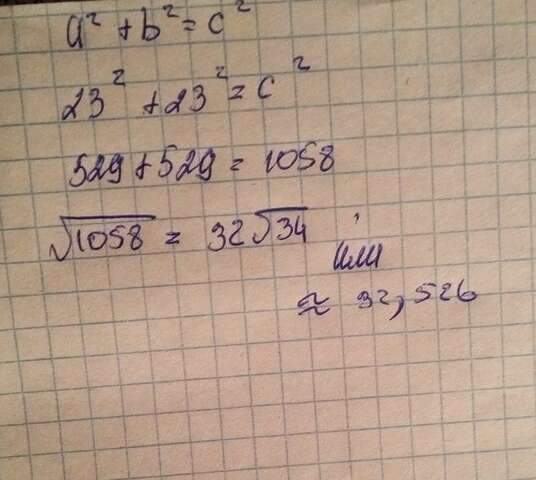 a² + b² = c²
23² + 23² = c²
529 + 529 = 1058
√1058 = 32√34
или
≈ 32,526